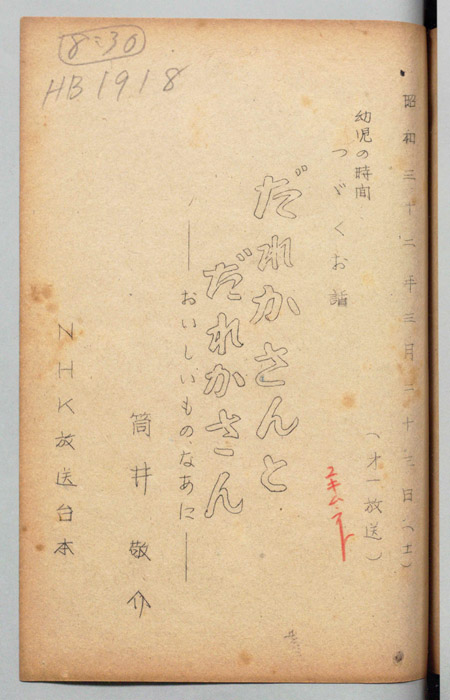 8:30
HB1918
昭和三十二年三月二十三日(土)
幼児の時間
つゞくお話
(才一放送)
だれかさんと
だれかさん
――おいしいもの、なあに――
筒井敬介
NHK放送台本